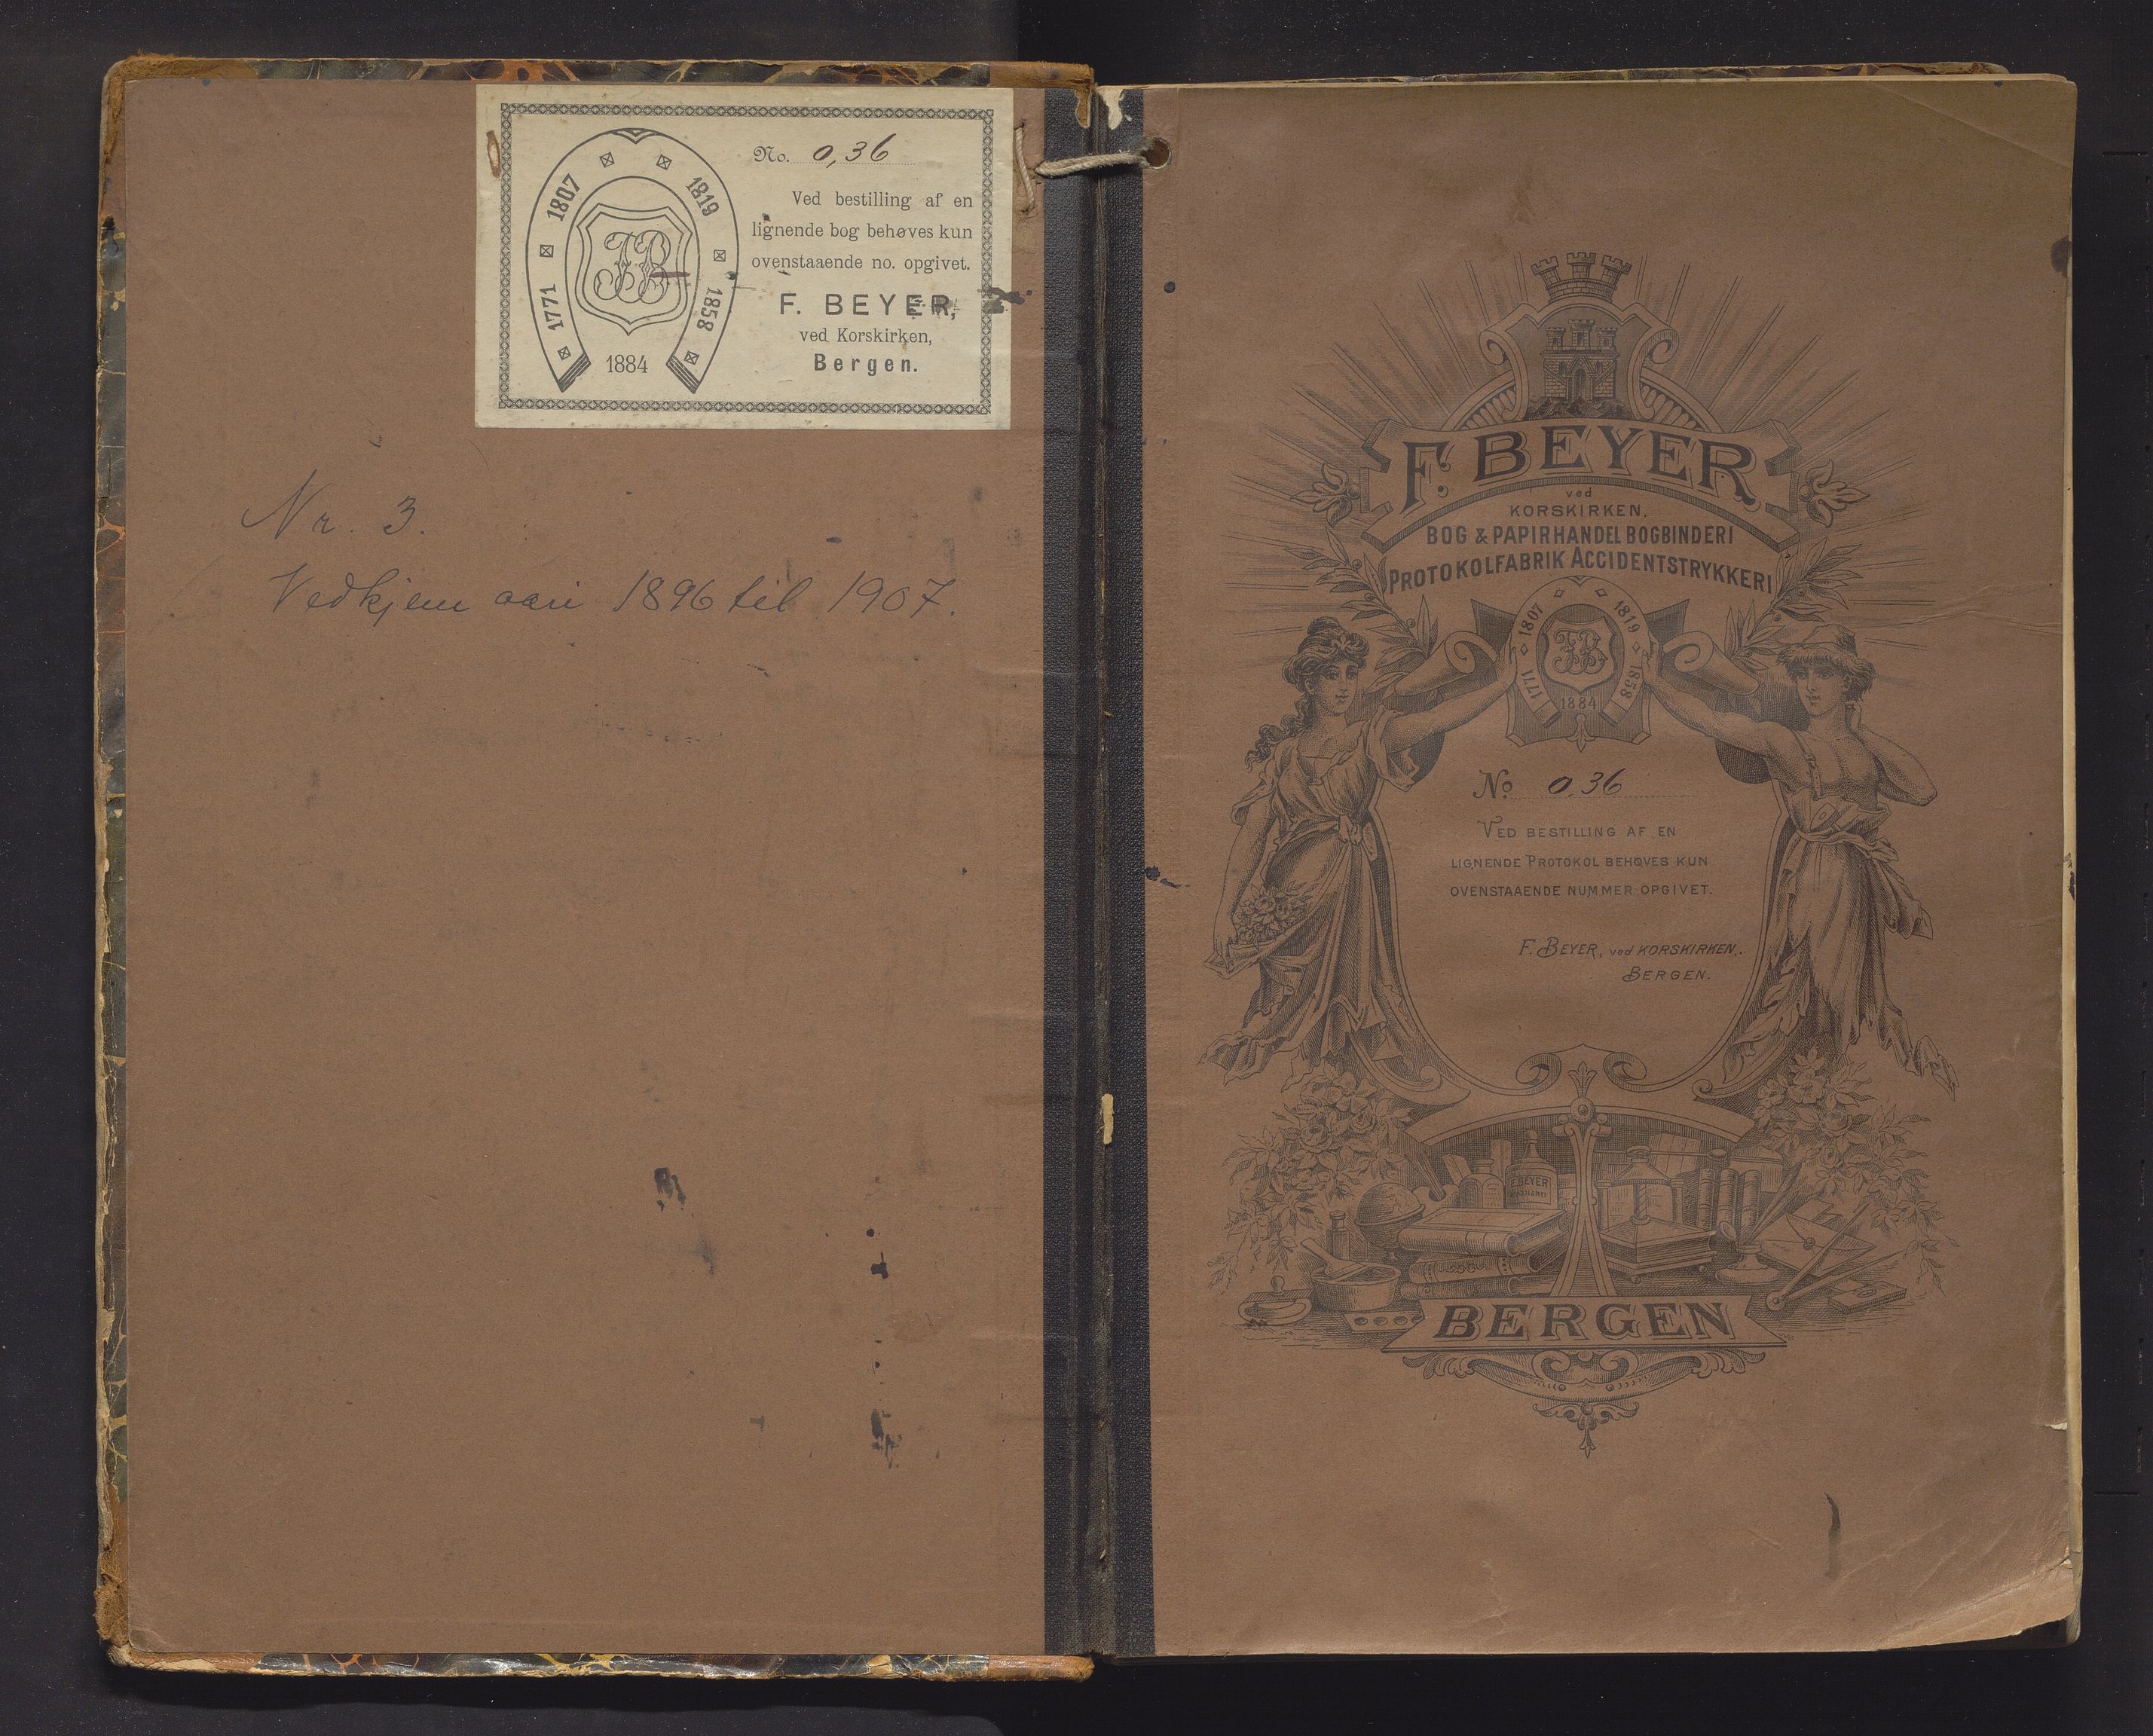 No. 0,36
Ved bestilling af en
lignende bog behøves kun
ovenstaaende no. opgivet.
F. BEYER,
ved Korskirken,
Bergen.
1771 1807 1819 1858
1884
FB
Nr. 3.
Vedkjem aari 1896 til 1907.
F. BEYER
ved
KORSKIRKEN.
BOG & PAPIRHANDEL BOGBINDERI
PROTOKOLFABRIK ACCIDENTSTRYKKERI
1771 1807 1819 1858
FB
1884
No 0,36
VED BESTILLING AF EN
LIGNENDE PROTOKOL BEHØVES KUN
OVENSTAAENDE NUMMER OPGIVET.
F. BEYER, ved KORSKIRKEN.
BERGEN.
F. BEYER
BERGEN